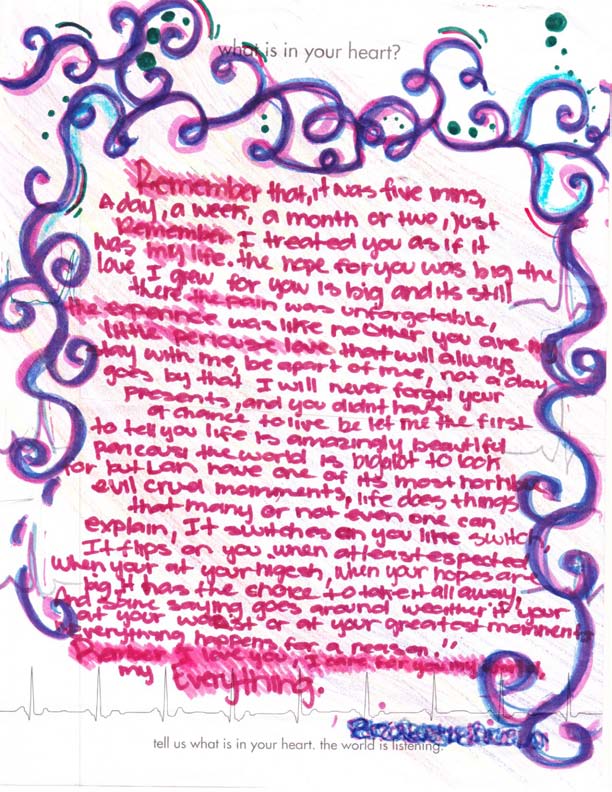 what is in your heart?
Remember that, it was five mins,
A day, a week, a month or two, just
Remember I treated you as if it
was my life. the hope for you was big the
love I grew for you is big and its still
there the pain was unforgetable,
the experince was like no other you are my
little periouse love that will always
stay with me, be apart of me, not a day
goes by that I will never forget your
presents, and you didnt have
a chance to live be let me the first
to tell you life is amazingly beautiful
the world is big alot to look
for but can have one of its most horrible
evil crual momments, life does things
that many or not even one can
explain, It switches on you like switch,
It flips on you when atleast espected
when your at your higesh, when your hopes are
big it has the choice to take it all away,
And same saying goes around weeither if your
at your worst or at your greatest momments
"everything happens for a reason."
I love you, I care for you my
my Everything.
tell us what is in your heart. the world is listening.